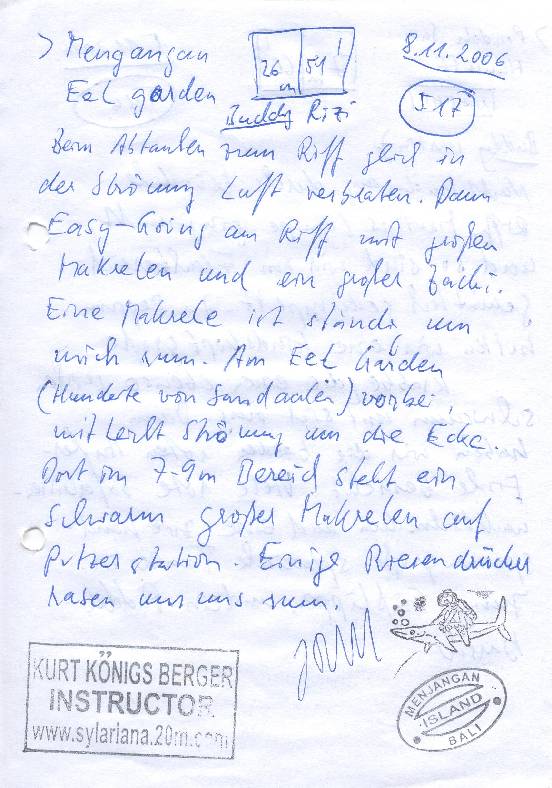 > Mengangan
Eel garden
26 m 51 !
8.11.2006
517
Buddy Rizi
Beim Abtauchen zum Riff gleich in
der Strömung Luft verbraten. Dann
Easy-Going am Riff mit großen
Makrelen und ein großer Zacki.
Eine Makrele ist ständig um
mich rum. Am Eel Garden
(Hunderte von Sandaalen) vorbei,
mit leicht Strömung um die Ecke.
Dort im 7-9m Bereich steht ein
Schwarm großer Makrelen auf
Putzerstation. Einige Riesendrücker
rasen um uns rum.
KURT KÖNIGS BERGER
INSTRUCTOR
www.sylariana.20m.com
MENJANGAN
ISLAND
BALI